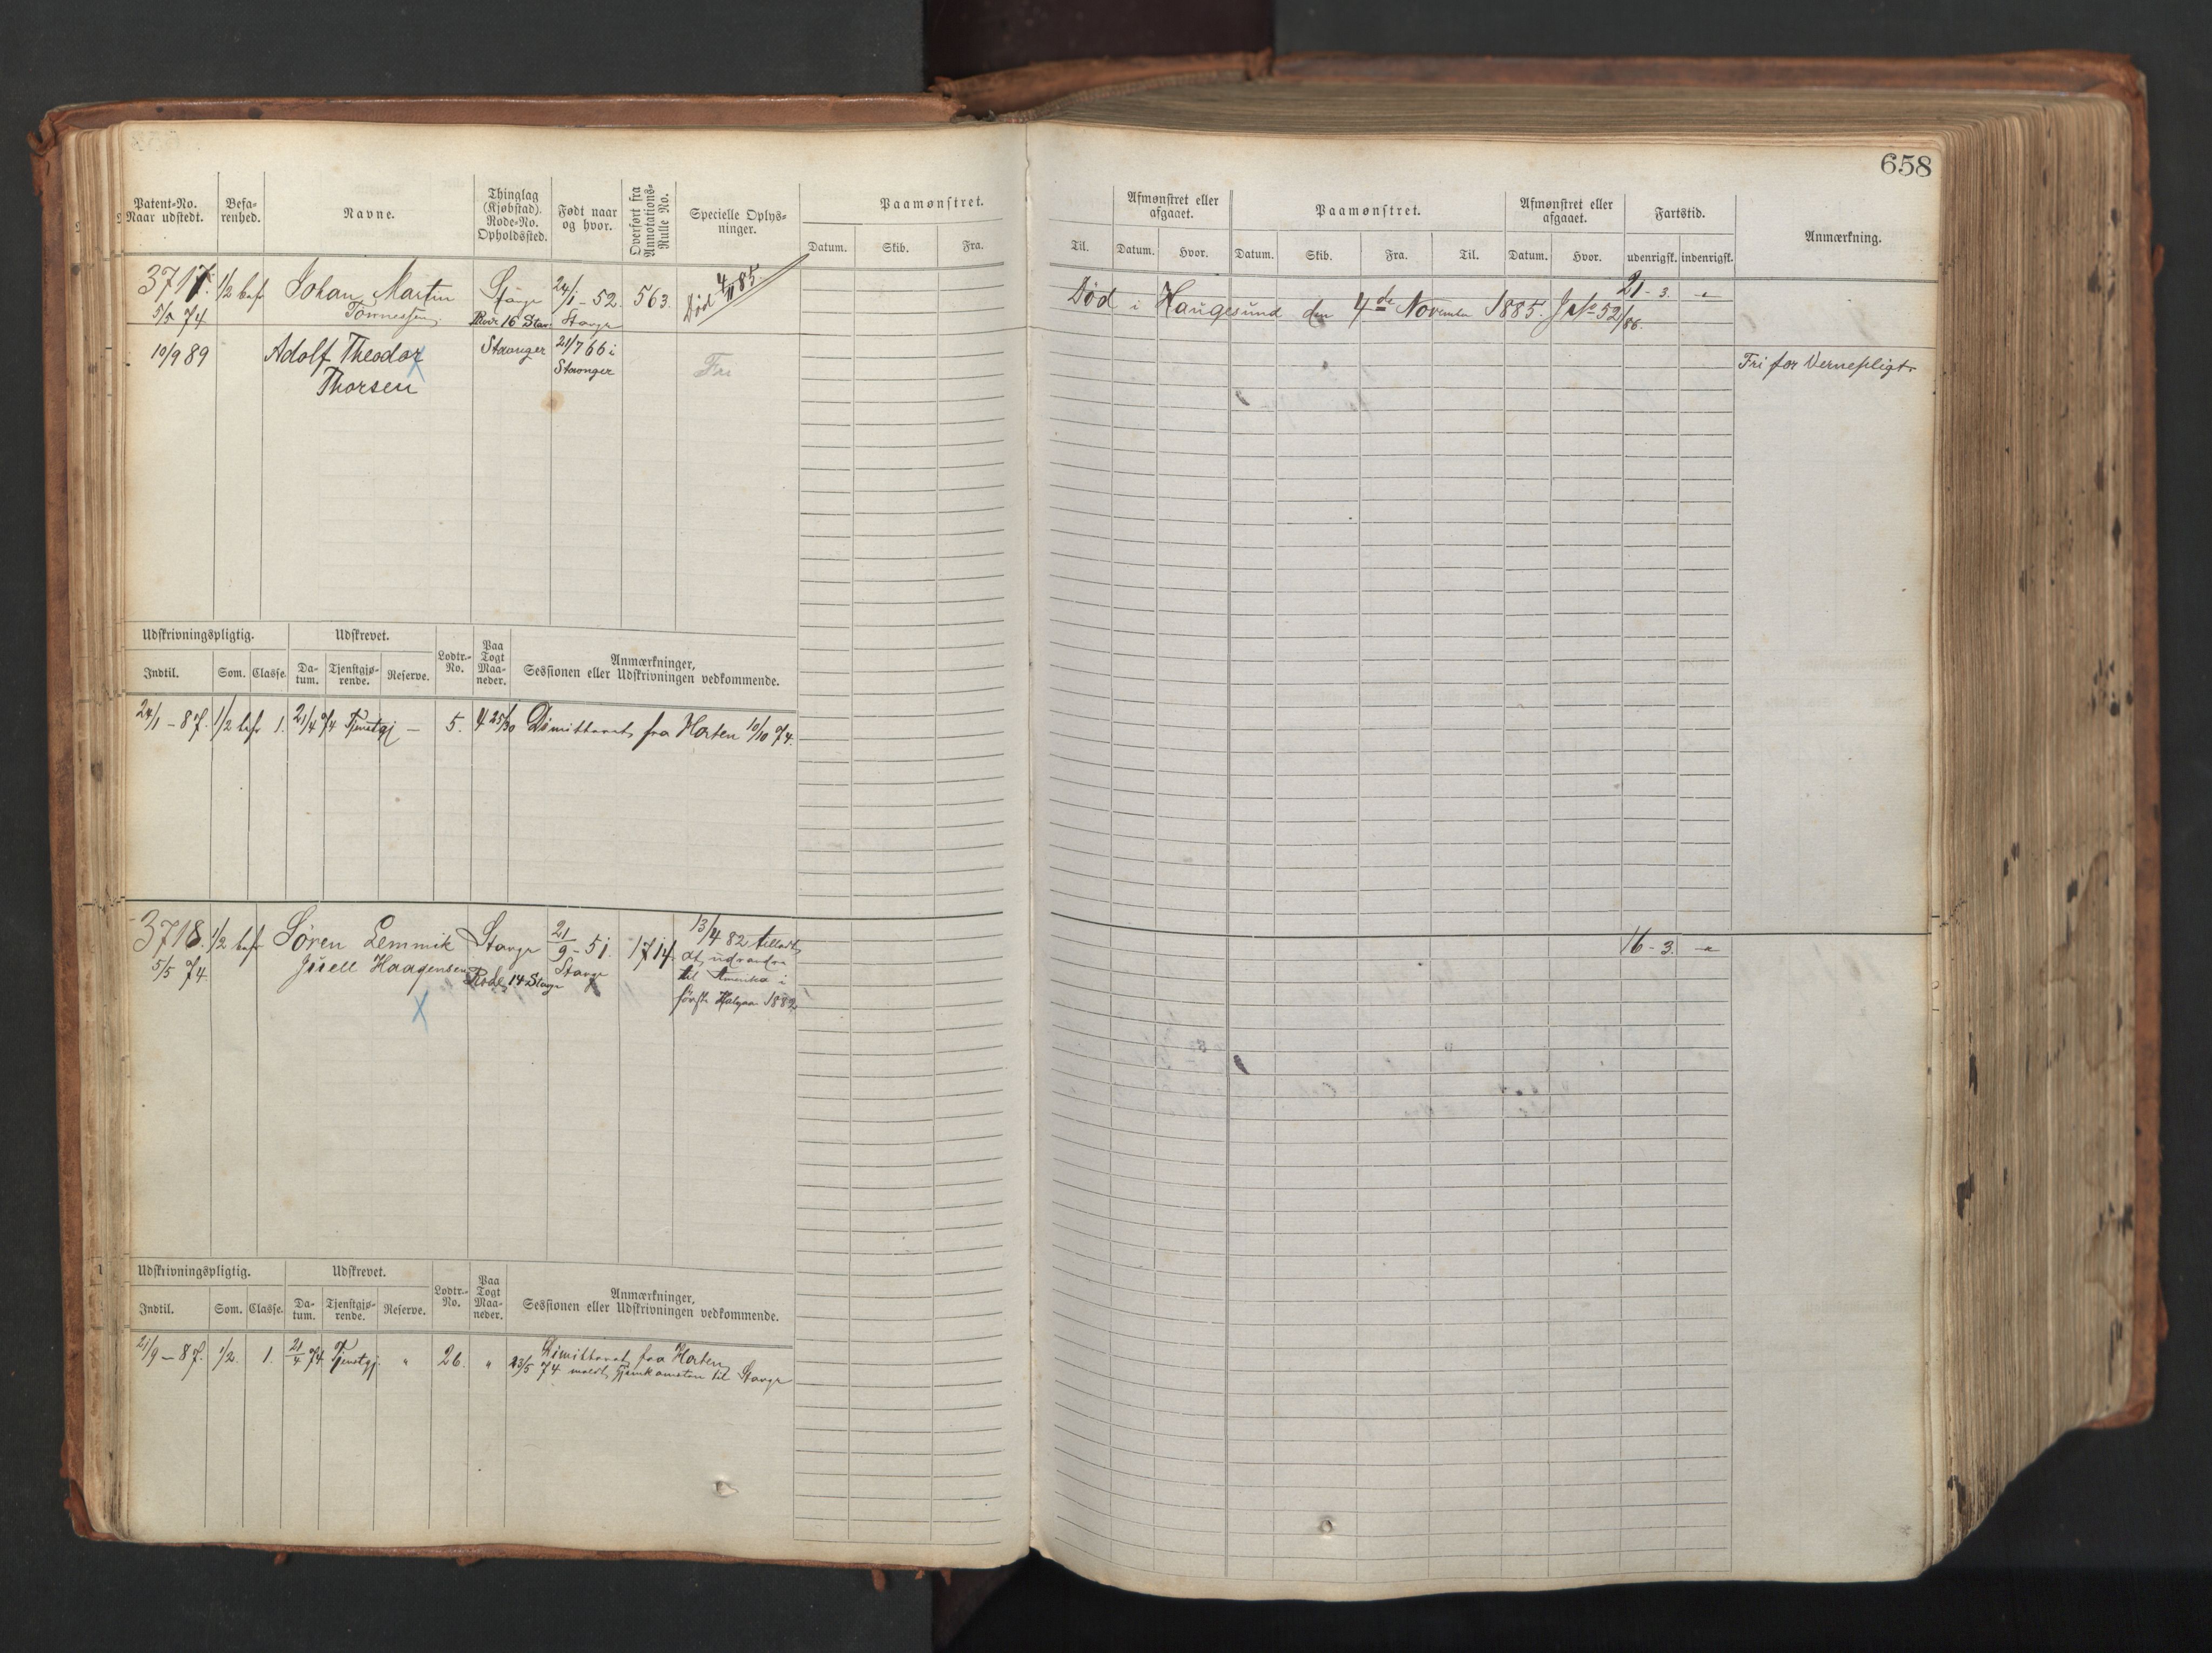 658
Patent-No. Naar udstedt.
Befa-renhed.
Navne.
Thinglag (Kjøbstad). Rode-No. Opholdssted.
Født naar og hvor.
Overført fra Annotations-Rulle No.
Specielle Oplys-ninger.
Paamønstret.
Datum. Skib. Fra.
Til.
Afmønstret eller afgaaet.
Datum. Hvor.
Paamønstret.
Datum. Skib. Fra. Til.
Afmønstret eller afgaaet.
Datum. Hvor.
Fartstid.
udenrigsk. indenrigsk.
Anmærkning.
3717. 1/2 bef Johan Martin Stavgr 24/1 - 52. 563. Død 4/11 85.
5/5 74 Tønnessen. Rode 16 Stav Stavgr
Død i Haugesund den 4de November 1885. J No 52/86. 21 - 3. "
10/9 89 Adolf Theodor Stavanger 21/7 66 i Fri
Thorsen Stavanger
Fri for Vernepligt.
Udskrivningspligtig. Udskrevet. Lodtr.-No. Paa Togt Maa-neder. Anmærkninger, Sessionen eller Udskrivningen vedkommende.
Indtil. Som. Classe. Da-tum. Tjenstgjø-rende. Reserve.
24/1 - 87. 1/2 bef 1. 21/4 74 Tjenstgj — 5. 4 25/30 Dimitteret fra Horten 10/10 74.
3718. 1/2 bef Sören Lemmik Stavgr 21/9 - 51. 1714. 13/4 82 tilladt
5/5 74. Jisell Haagensen Rode 14 Stavgr Stavgr at udvandre
til Amerika i
første Halvaar 1882
16 - 3. "
Udskrivningspligtig. Udskrevet. Lodtr.-No. Paa Togt Maa-neder. Anmærkninger, Sessionen eller Udskrivningen vedkommende.
Indtil. Som. Classe. Da-tum. Tjenstgjø-rende. Reserve.
21/9 - 87. 1/2. 1. 21/4 74. Tjenstgj. " 26. " Dimitteret fra Horten
23/5 74 meldt Hjemkomsten til Stavgr